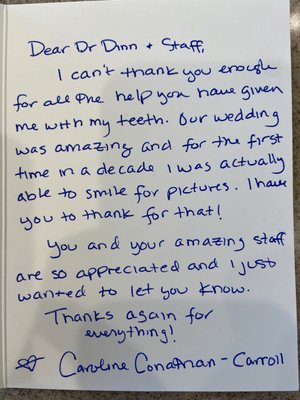 Dear Dr Dinn + Staff,
I can't thank you enough
for all the help you have given
me with my teeth. Our wedding
was amazing and for the first
time in a decade I was actually
able to smile for pictures. I have
you to thank for that!
You and your amazing staff
are so appreciated and I just
wanted to let you know.
Thanks again for
everything!
Caroline Conathan - Carroll